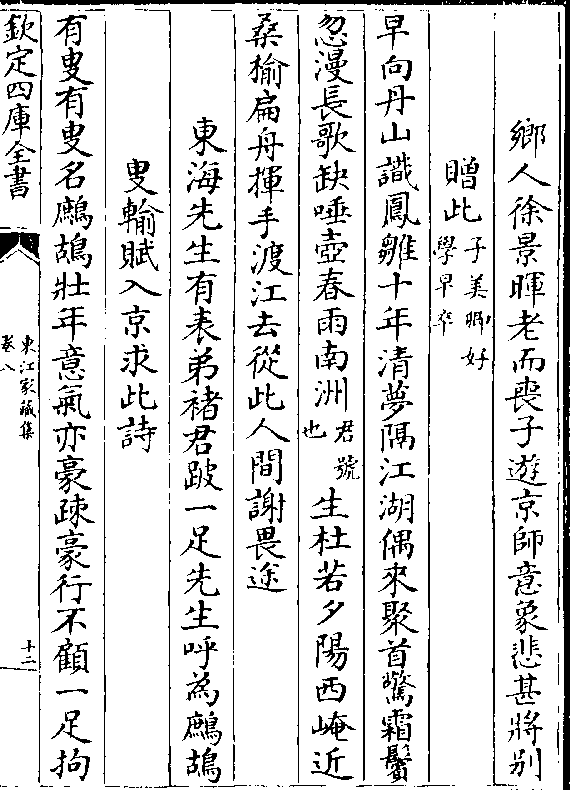 鄉人徐景暉老而喪子遊京師意象悲甚將别
贈此子美㫼好
學早卒
早向丹山識鳳雛十年清夢隔江湖偶來聚首驚霜鬢
忽漫長歌缺唾壺春雨南洲君號
也生杜若夕陽西崦近
桑榆扁舟揮手渡江去從此人間謝畏途
東海先生有表弟褚君跛一足先生呼為鷓鴣
叟輸賦入京求此詩
有叟有叟名鷓鴣壯年意氣亦豪疎豪行不顧一足拘
欽定四庫全書
東江家藏集
卷八
十二